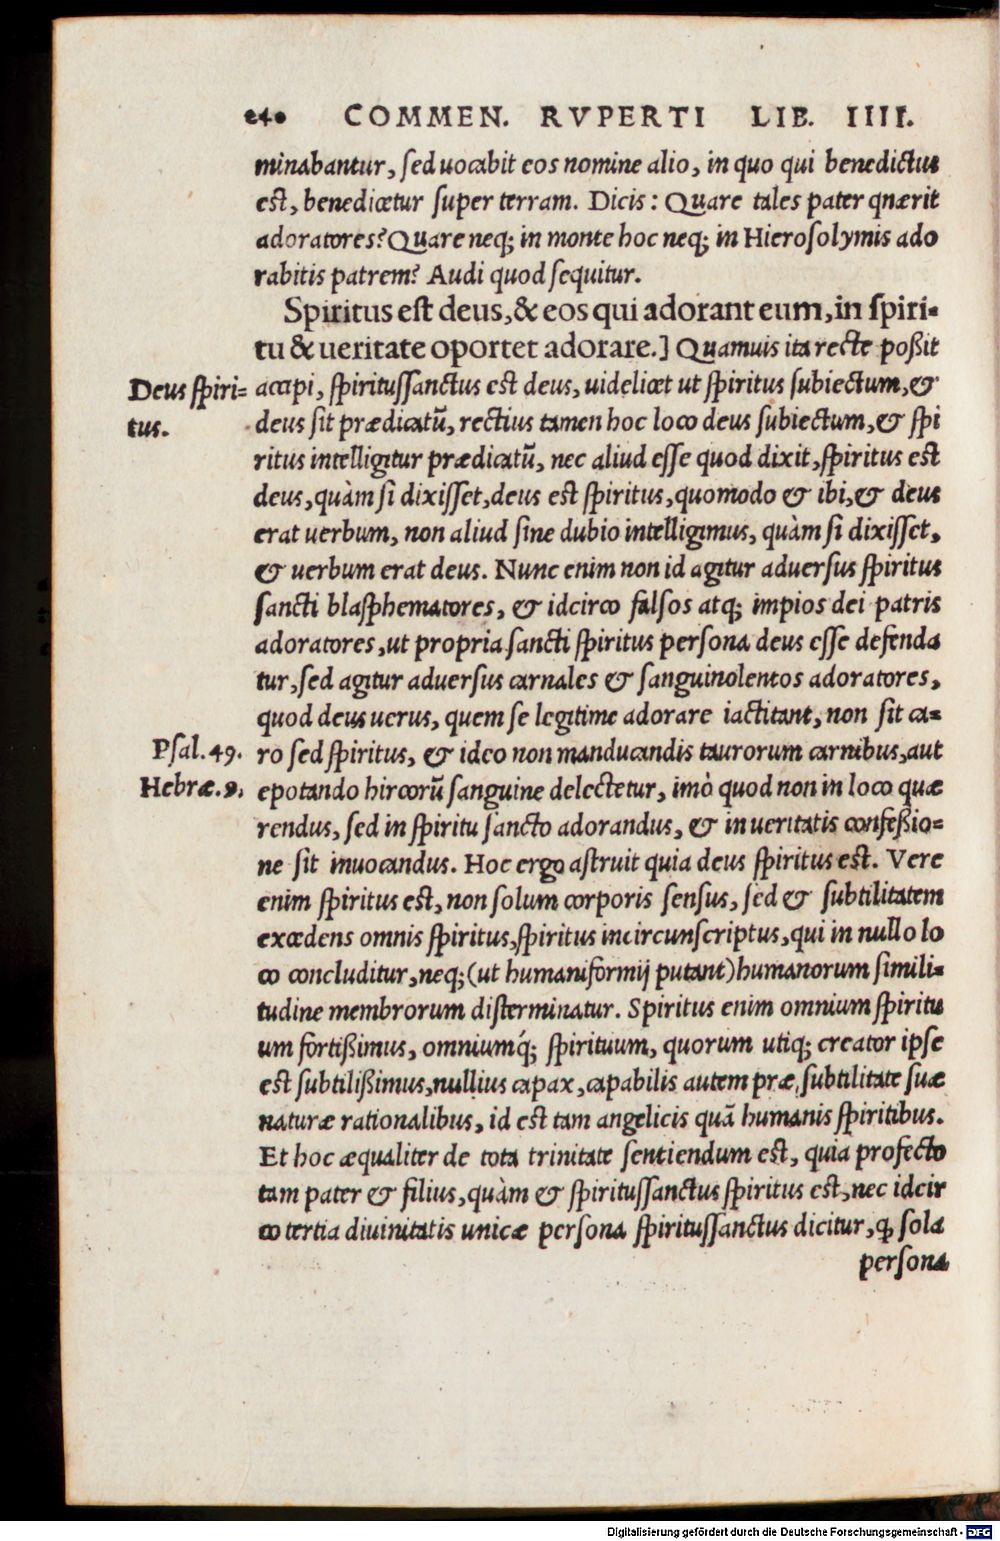 240 COMMEN. RVPERTI LIB. IIII.
minabantur, ſed uocabit eos nomine alio, in quo qui benedictus
eſt, benedicetur ſuper terram. Dicis: Quare tales pater qnærit
adoratores? Quare neq; in monte hoc neq; in Hieroſolymis ado
rabitis patrem? Audi quod ſequitur.
Spiritus eſt deus, & eos qui adorant eum, in ſpiri-
tu & ueritate oportet adorare.] Quamuis ita recte poßit
Deus ſpiri-
tus.
accipi, ſpirituſſanctus est deus, uidelicet ut ſpiritus ſubiectum, &
deus ſit prædicatū, rectius tamen hoc loco deus ſubiectum, & ſpi
ritus intelligitur prædicatū, nec aliud eſſe quod dixit, ſpiritus eſt
deus, quàm ſi dixiſſet, deus eſt ſpiritus, quomodo & ibi, & deus
erat uerbum, non aliud ſine dubio intelligimus, quàm ſi dixiſſet,
& uerbum erat deus. Nunc enim non id agitur aduerſus ſpiritus
ſancti blaſphematores, & idcirco falſos atq; impios dei patris
adoratores, ut propria ſancti ſpiritus perſona deus eſſe defenda
tur, ſed agitur aduerſus carnales & ſanguinolentos adoratores,
quod deus uerus, quem ſe legitime adorare iactitant, non ſit ca-
Pſal. 49.
ro ſed ſpiritus, & ideo non manducandis taurorum carnibus, aut
Hebræ. 9.
epotando hircorū ſanguine delectetur, imò quod non in loco quæ
rendus, ſed in ſpiritu ſancto adorandus, & in ueritatis confeßio-
ne ſit inuocandus. Hoc ergo aſtruit quia deus ſpiritus eſt. Vere
enim ſpiritus eſt, non ſolum corporis ſenſus, ſed & ſubtilitatem
excedens omnis ſpiritus, ſpiritus incircunſcriptus, qui in nullo lo
co concluditur, neq; (ut humaniformij putant) humanorum ſimili-
tudine membrorum diſterminatur. Spiritus enim omnium ſpiritu
um fortißimus, omniumq́; ſpirituum, quorum utiq; creator ipſe
eſt ſubtilißimus, nullius capax, capabilis autem præ ſubtilitate ſuæ
naturæ rationalibus, id eſt tam angelicis quā humanis ſpiritibus.
Et hoc æqualiter de tota trinitate ſentiendum eſt, quia profecto
tam pater & filius, quàm & ſpirituſſanctus ſpiritus eſt, nec idcir
co tertia diuinitatis unicæ perſona ſpirituſſanctus dicitur, ꝙ ſola
perſona
Digitalisierung gefördert durch die Deutsche Forschungsgemeinschaft - DFG